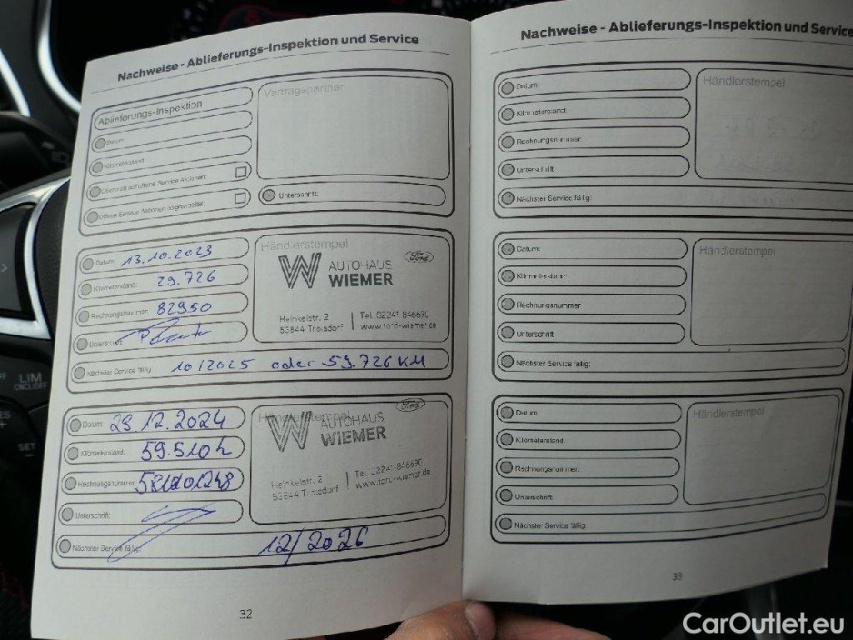 Nachweise - Ablieferungs-Inspektion und Service
Ablieferungs-Inspektion
Vertragspartner
Datum:
Kilometerstand:
Unterschrift:
Datum: 13.10.2023
Kilometerstand: 29.726
Rechnungsnummer: 82950
Unterschrift:
Nächster Service fällig: 10/2025 oder 59.726 KM
Händlerstempel
AUTOHAUS
WIEMER
Ford
Heinkelstr. 2
53844 Troisdorf
Tel. 02241 846690
www.ford-wiemer.de
Datum: 23.12.2024
Kilometerstand: 59.510
Rechnungsnummer:
Unterschrift:
Nächster Service fällig: 12/2026
Händlerstempel
AUTOHAUS
WIEMER
Ford
Heinkelstr. 2
53844 Troisdorf
Tel. 02241 846690
www.ford-wiemer.de
32
Nachweise - Ablieferungs-Inspektion und Service
Datum:
Kilometerstand:
Rechnungsnummer:
Unterschrift:
Nächster Service fällig:
Händlerstempel
Datum:
Kilometerstand:
Rechnungsnummer:
Unterschrift:
Nächster Service fällig:
Händlerstempel
Datum:
Kilometerstand:
Rechnungsnummer:
Unterschrift:
Nächster Service fällig:
Händlerstempel
33
LIM
SET
CarOutlet.eu